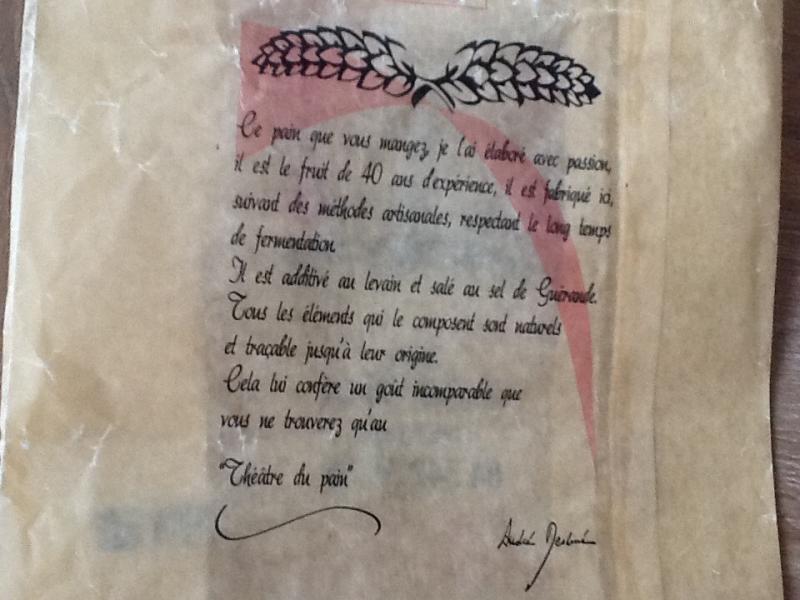 Ce pain que vous mangez, je l'ai élaboré avec passion,
il est le fruit de 40 ans d'expérience, il est fabriqué ici,
suivant des méthodes artisanales, respectant le long temps
de fermentation.
Il est additivé au levain et salé au sel de Guérande.
Tous les éléments qui le composent sont naturels
et traçable jusqu'à leur origine.
Cela lui confère un goût incomparable que
vous ne trouverez qu'au
"Théâtre du pain"